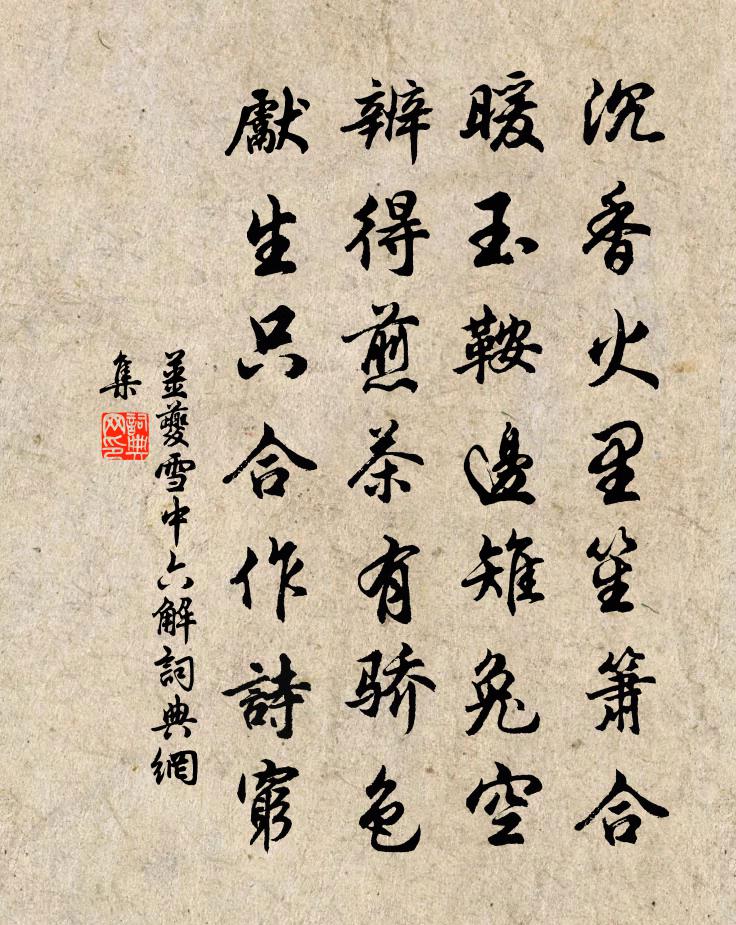 沉香火里笙簫合
暖玉鞍邊雉兔空
辨得煎茶有骄色
獻生只合作詩窮
薑夔雪中六解詞典網
集
詞典
网印